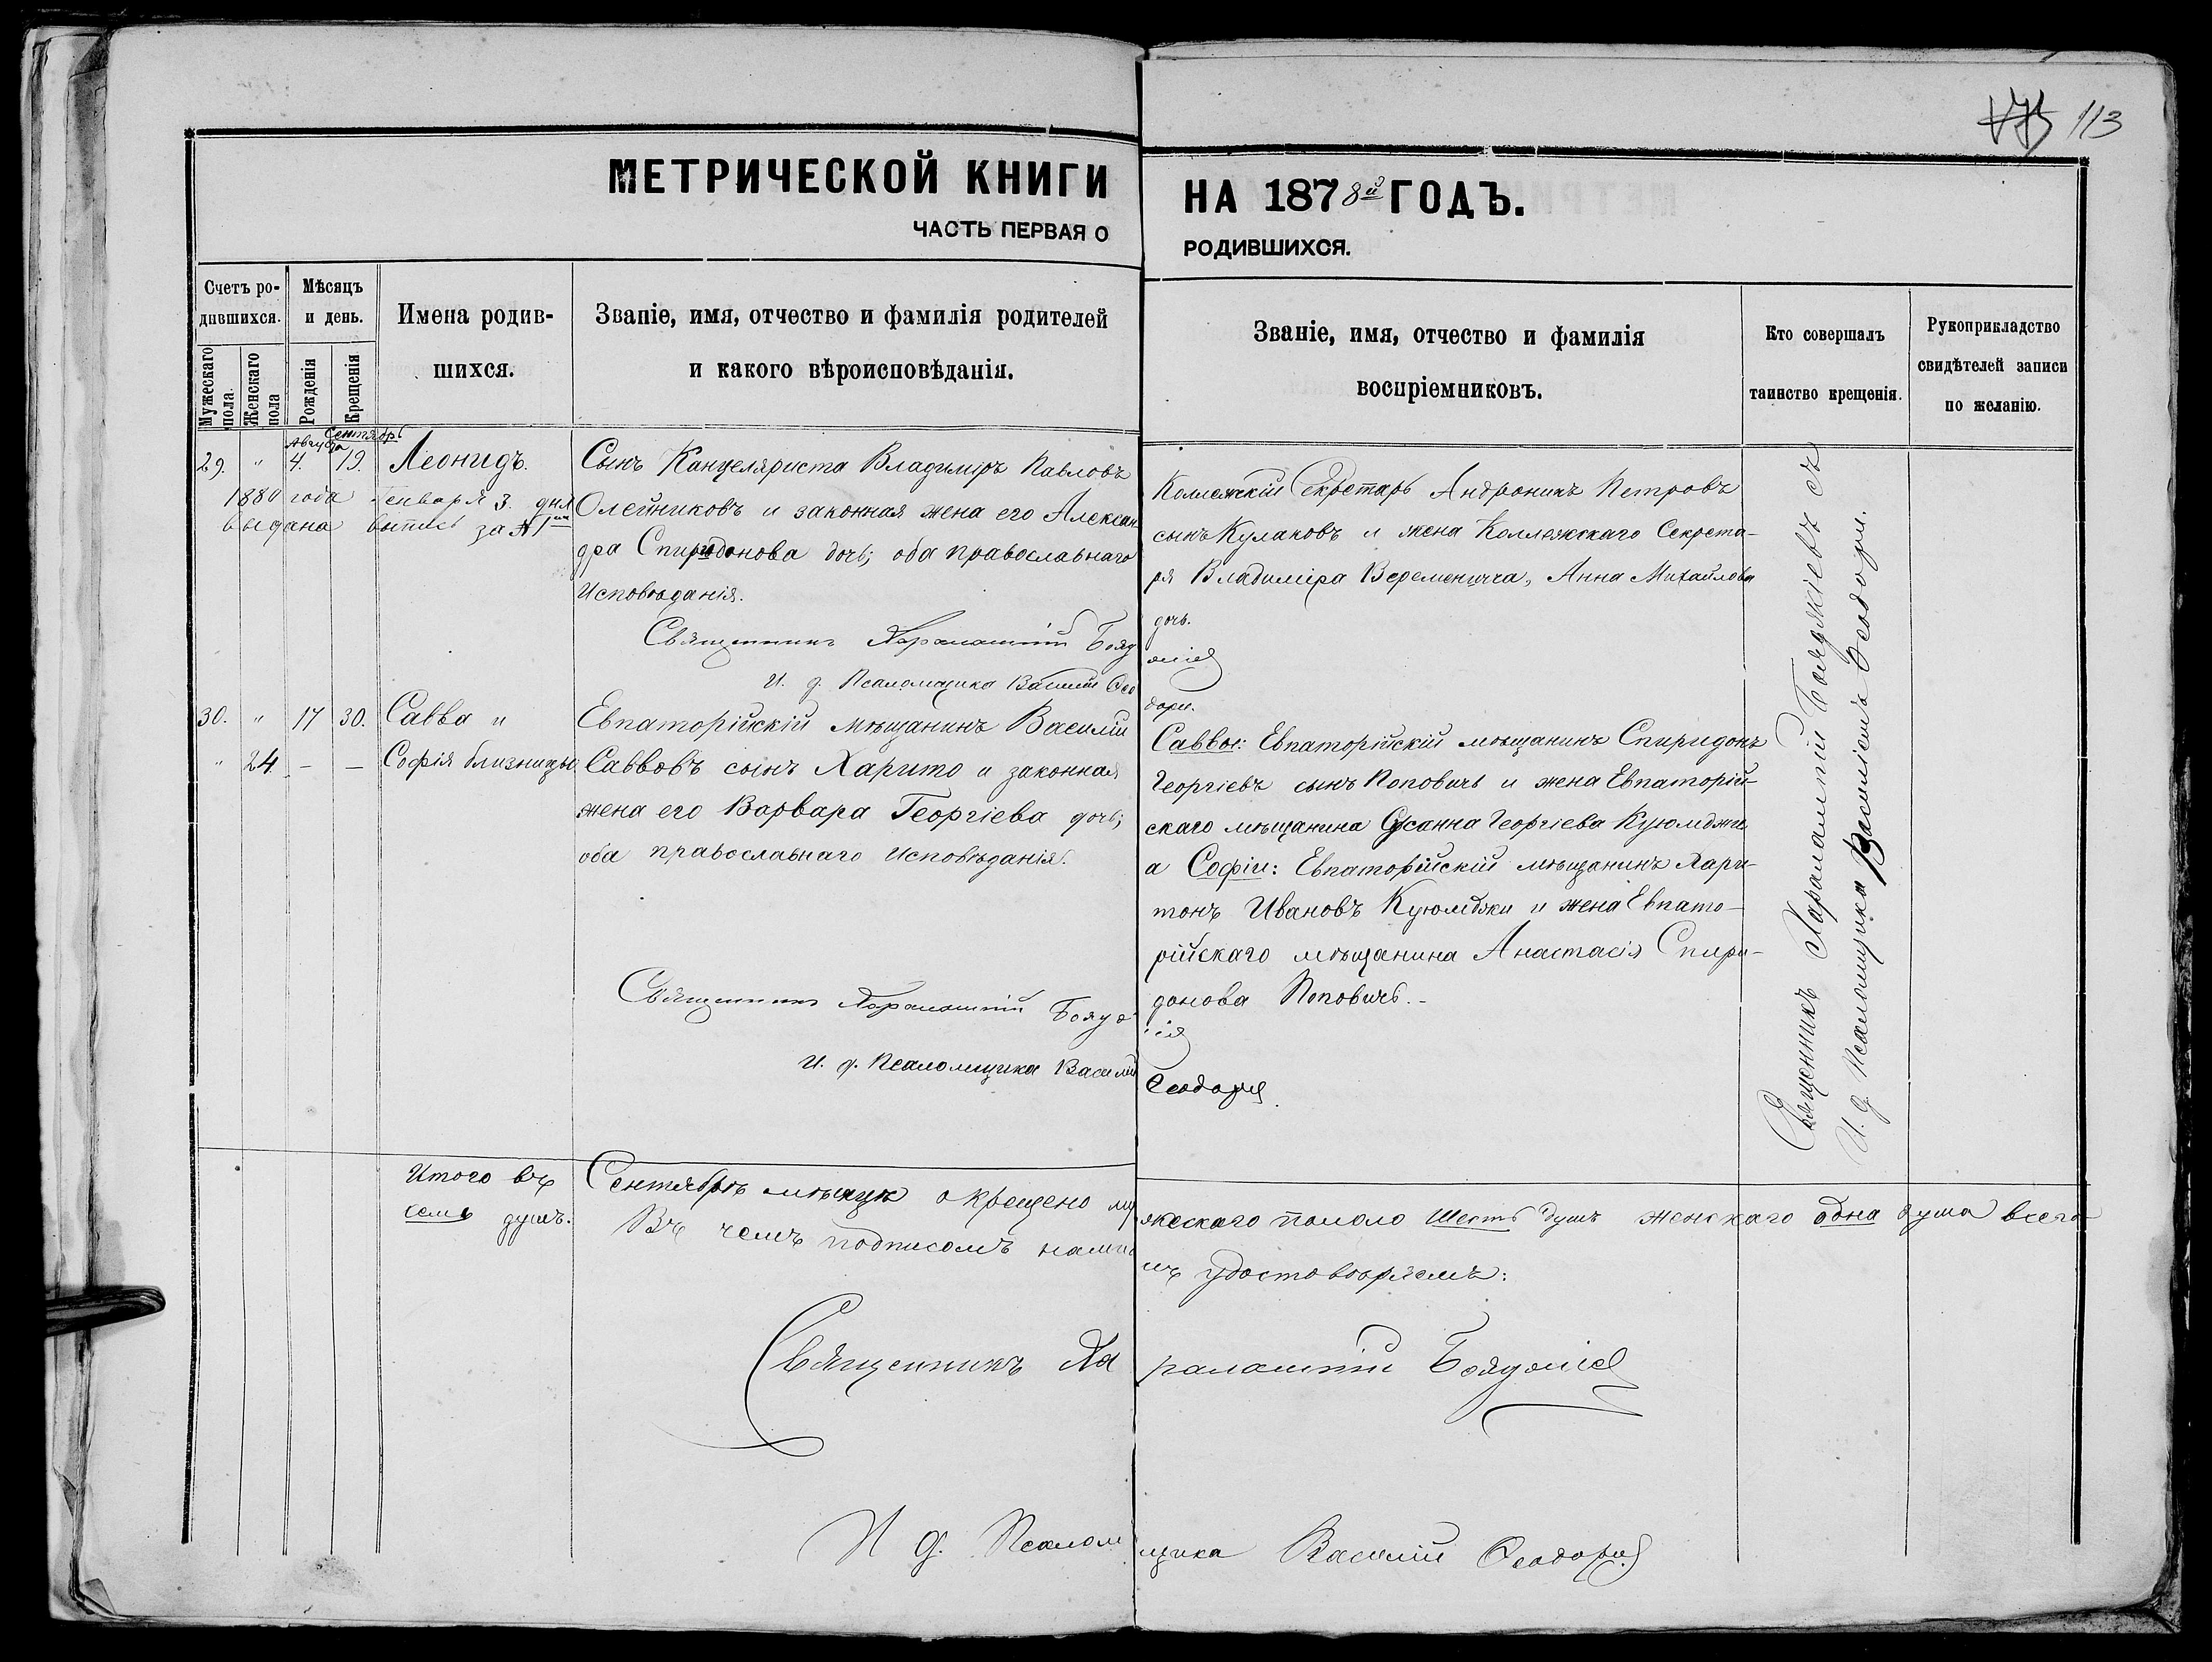 113
МЕТРИЧЕСКОЙ КНИГИ
НА 1878й ГОДЪ.
ЧАСТЬ ПЕРВАЯ О
РОДИВШИХСЯ.
Счетъ ро-
дившихся.
Мужескаго пола.
Женскаго пола
Мѣсяцъ
и день.
Рожденія
Крещенія
Имена родив-
шихся.
Званіе, имя, отчество и фамилія родителей
и какого вѣроисповѣданія.
Званіе, имя, отчество и фамилія
воспріемниковъ.
Кто совершалъ
таинство крещенія.
Рукоприкладство
свидѣтелей записи
по желанію.
Августа Сентябрь
29. " 4. 19. Леонидъ.
1880 года Генваря 3. дня
выдана выпись за №1мъ
Сынъ Канцеляриста Владиміръ Павловъ
Олейниковъ и законная жена его Алексан
дра Спиридонова дочь; оба православнаго
Исповѣданія.
Священникъ Харалампій Бояд
жіев
И. д. Псаломщика Василій Ѳео
дори.
Коллежскій Секретарь Андроникъ Петровъ
сынъ Кулаковъ и жена Коллежскаго Секрета-
ря Владиміра Веременича, Анна Михайлова
дочь.
30. " 17 30. Савва и
" 24 — — Софія близницы
Евпаторійскій мѣщанинъ Василій
Саввовъ сынъ Харито и законная
жена его Варвара Георгіева дочь;
оба православнаго Исповѣданія.
Священникъ Харалампій Бояд
И. д. Псаломщика Василій
Ѳеодори
Саввы: Евпаторійскій мѣщанинъ Спиридонъ
Георгіевъ сынъ Поповичъ и жена Евпаторій-
скаго мѣщанина Сусанна Георгіева Куюмджи
а Софіи: Евпаторійскій мѣщанинъ Хари-
тонъ Ивановъ Куюмджи и жена Евпато-
рійскаго мѣщанина Анастасія Спири-
донова Поповичъ.-
Священникъ Харалампій Бояджіевъ съ
И. д. Псаломщика Василіемъ Ѳеодори.
Итого въ Сентябрѣ мѣсяцѣ окрещено му
жескаго пола шесть душъ женскаго одна душа всего
семь душъ.
Въ чемъ подписомъ нашимъ удостовѣряемъ:
Священникъ Харалампій Бояджіев
И д. Псаломщика Василій Ѳеодори